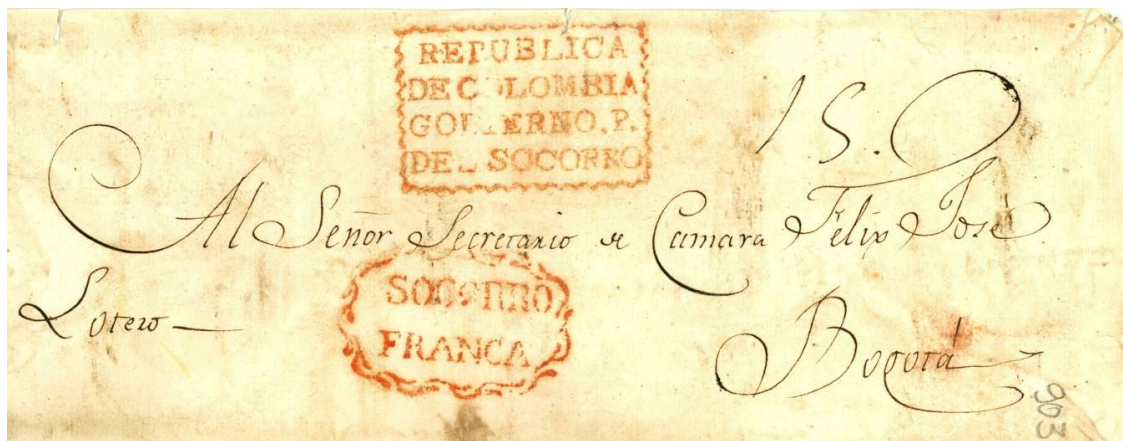 REPUBLICA
DE COLOMBIA
GOBIERNO. P.
DEL SOCORRO
15.
Al Señor Secretario de Camara Felix José
Lotero
SOCORRO
FRANCA
Bogotá
903